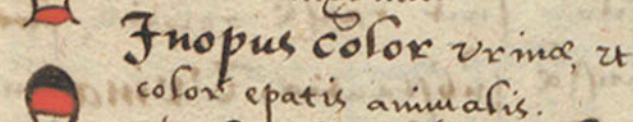 Inopus color vrinæ, vt
color epatis animalis.